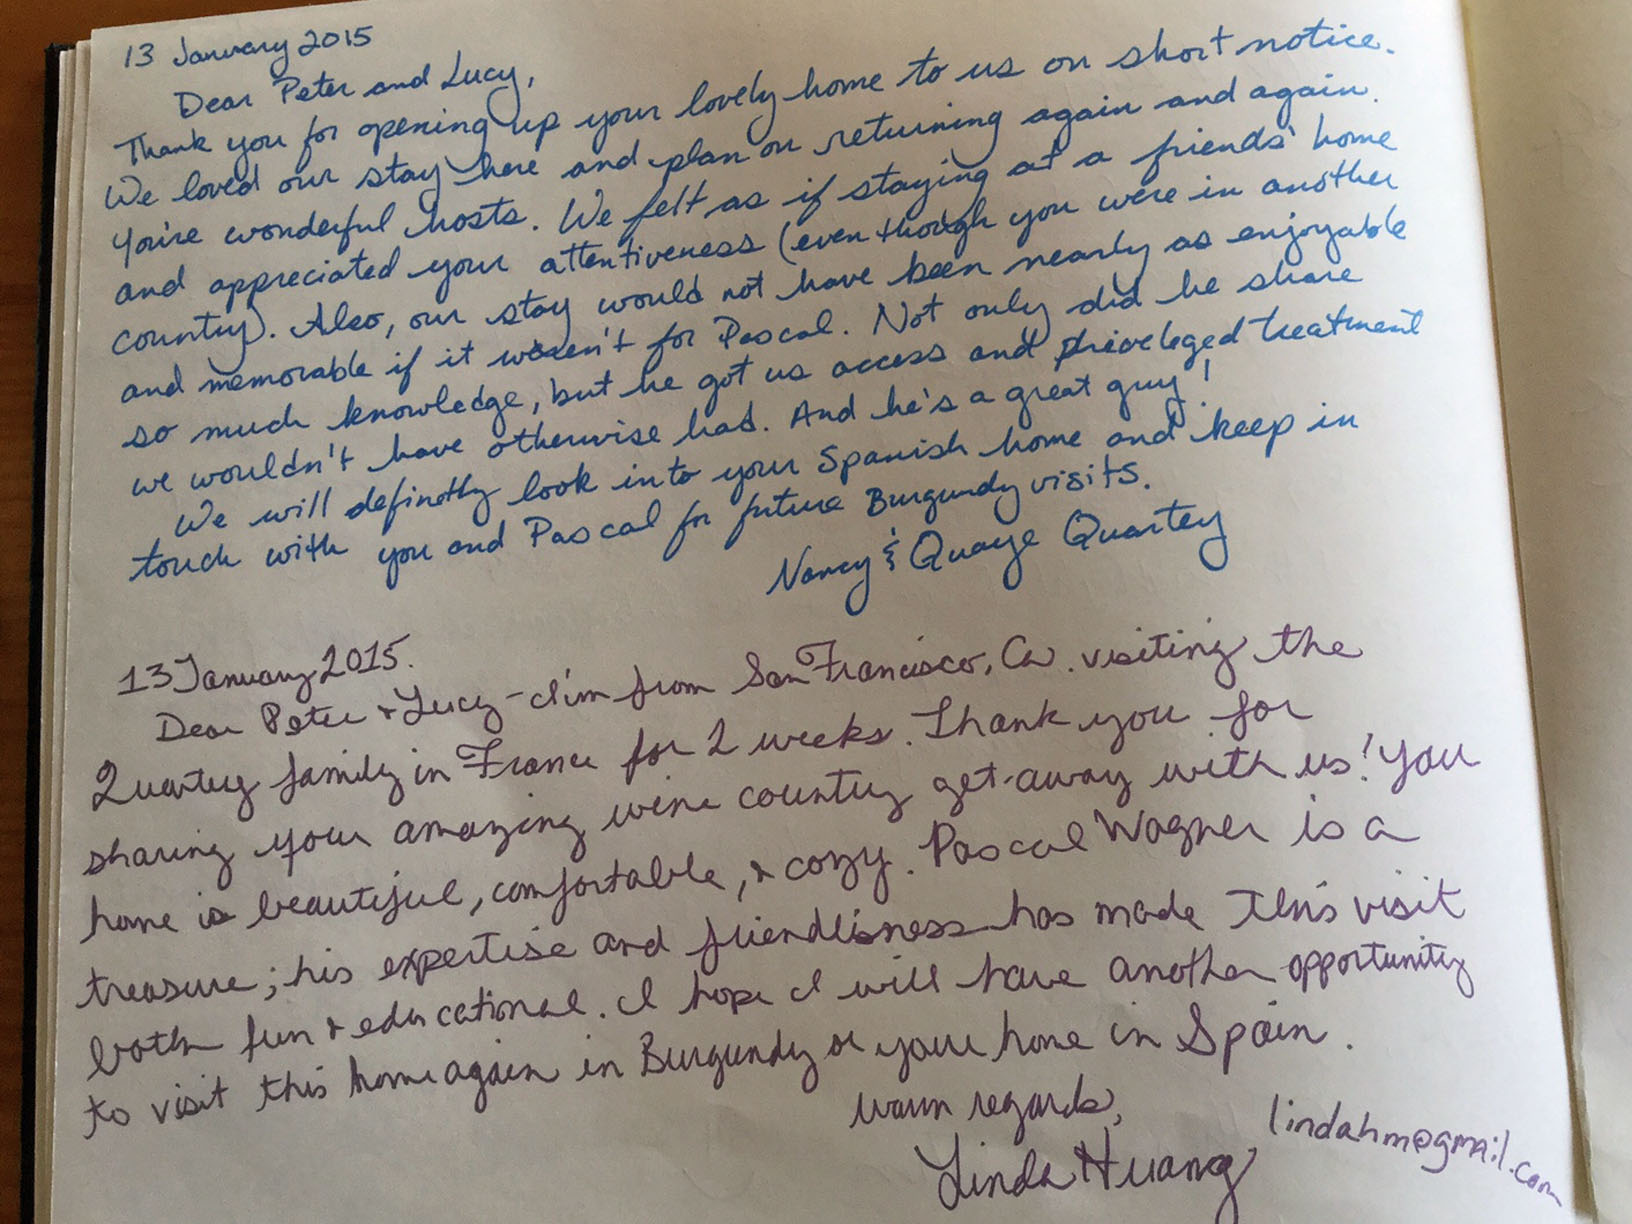 13 January 2015
Dear Peter and Lucy,
Thank you for opening up your lovely home to us on short notice.
We loved our stay here and plan on returning again and again.
You're wonderful hosts. We felt as if staying at a friends' home
and appreciated your attentiveness (even though you were in another
country). Also, our stay would not have been nearly as enjoyable
and memorable if it weren't for Pascal. Not only did he share
so much knowledge, but he got us access and priveleged treatment
we wouldn't have otherwise had. And he's a great guy!
We will definetly look into your Spanish home and keep in
touch with you and Pascal for future Burgundy visits.
Nancy & Quaye Quartey
13 January 2015.
Dear Peter & Lucy - I'm from San Francisco, Ca. visiting the
Quartey family in France for 2 weeks. Thank you for
sharing your amazing wine country get-away with us! You
home is beautiful, comfortable, & cozy. Pascal Wagner is a
treasure; his expertise and friendlisness has made this visit
both fun & educational. I hope I will have another opportunity
to visit this home again in Burgundy or your home in Spain.
Warm regards,
Linda Huang
lindahm@gmail.com